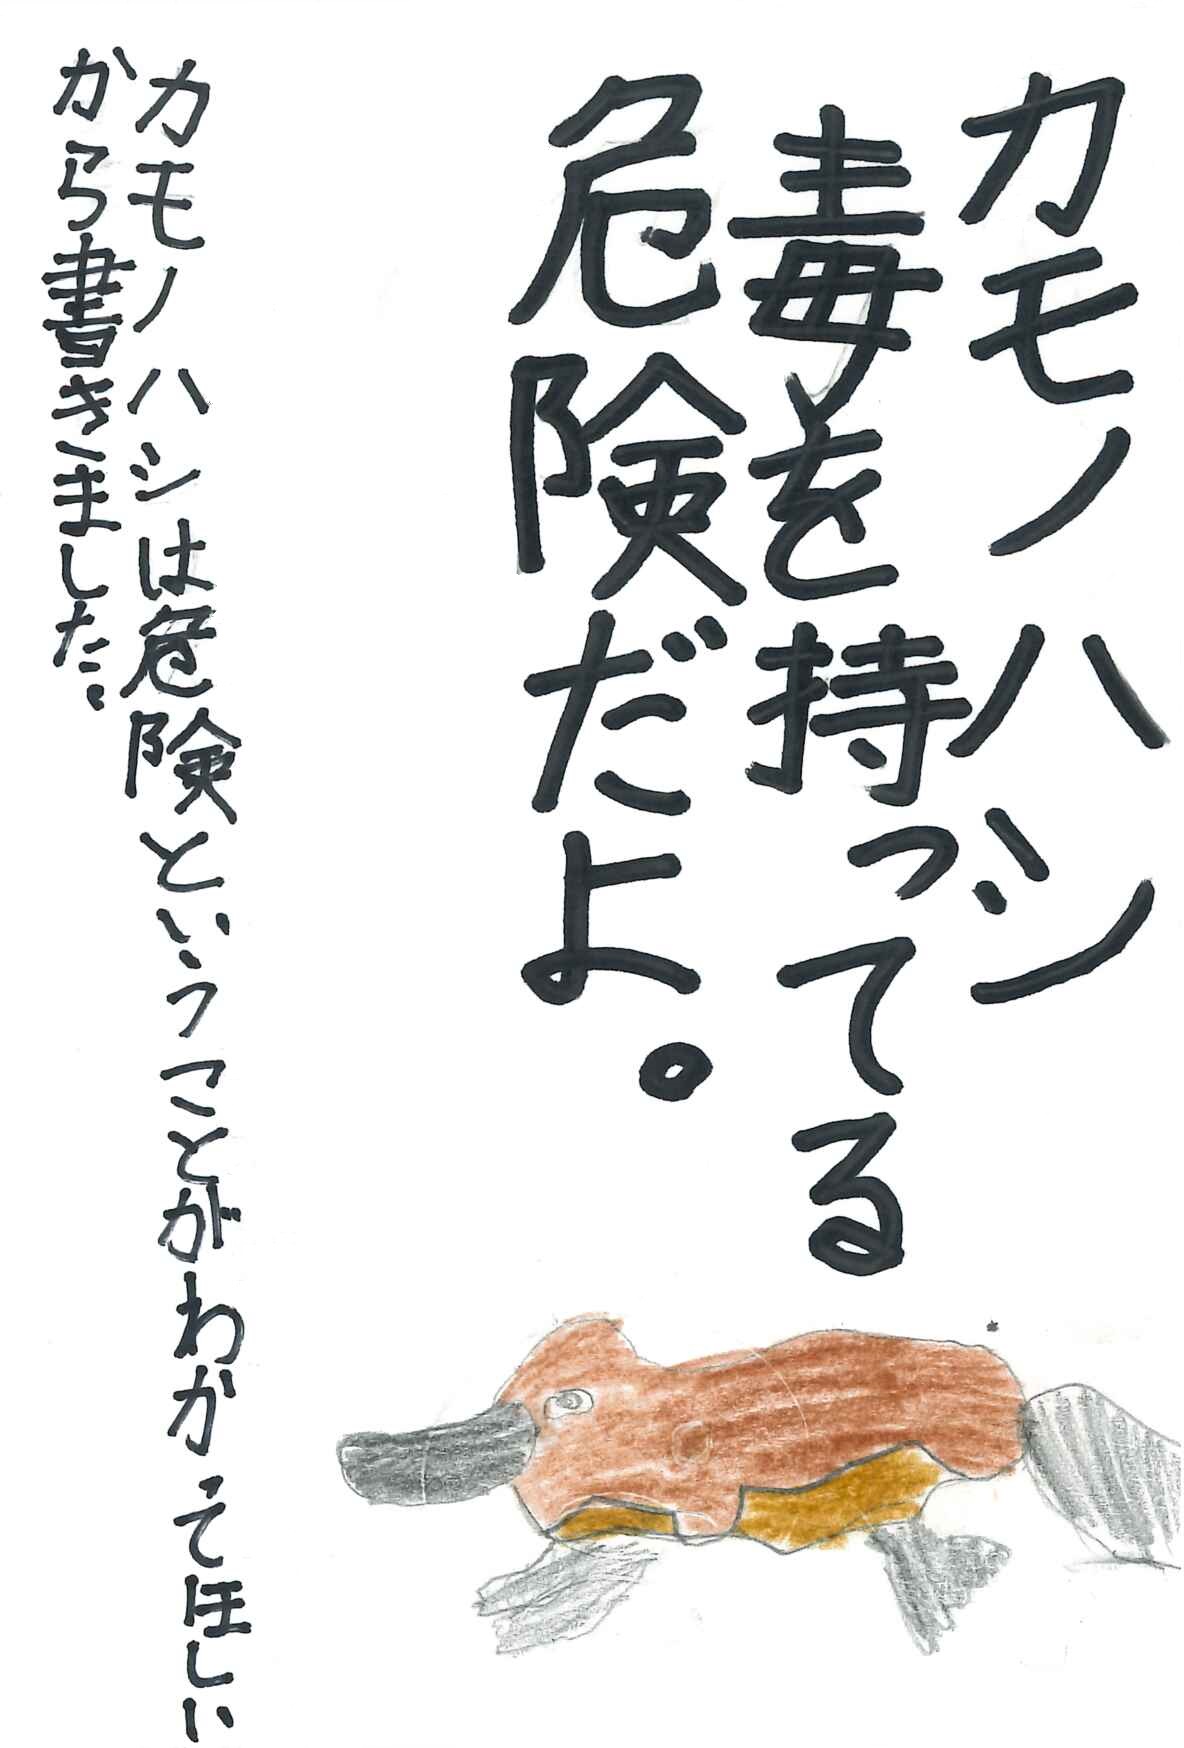 カモノハシ
毒を持ってる
危険だよ。
カモノハシは危険ということがわかって ほしい
から書きました。